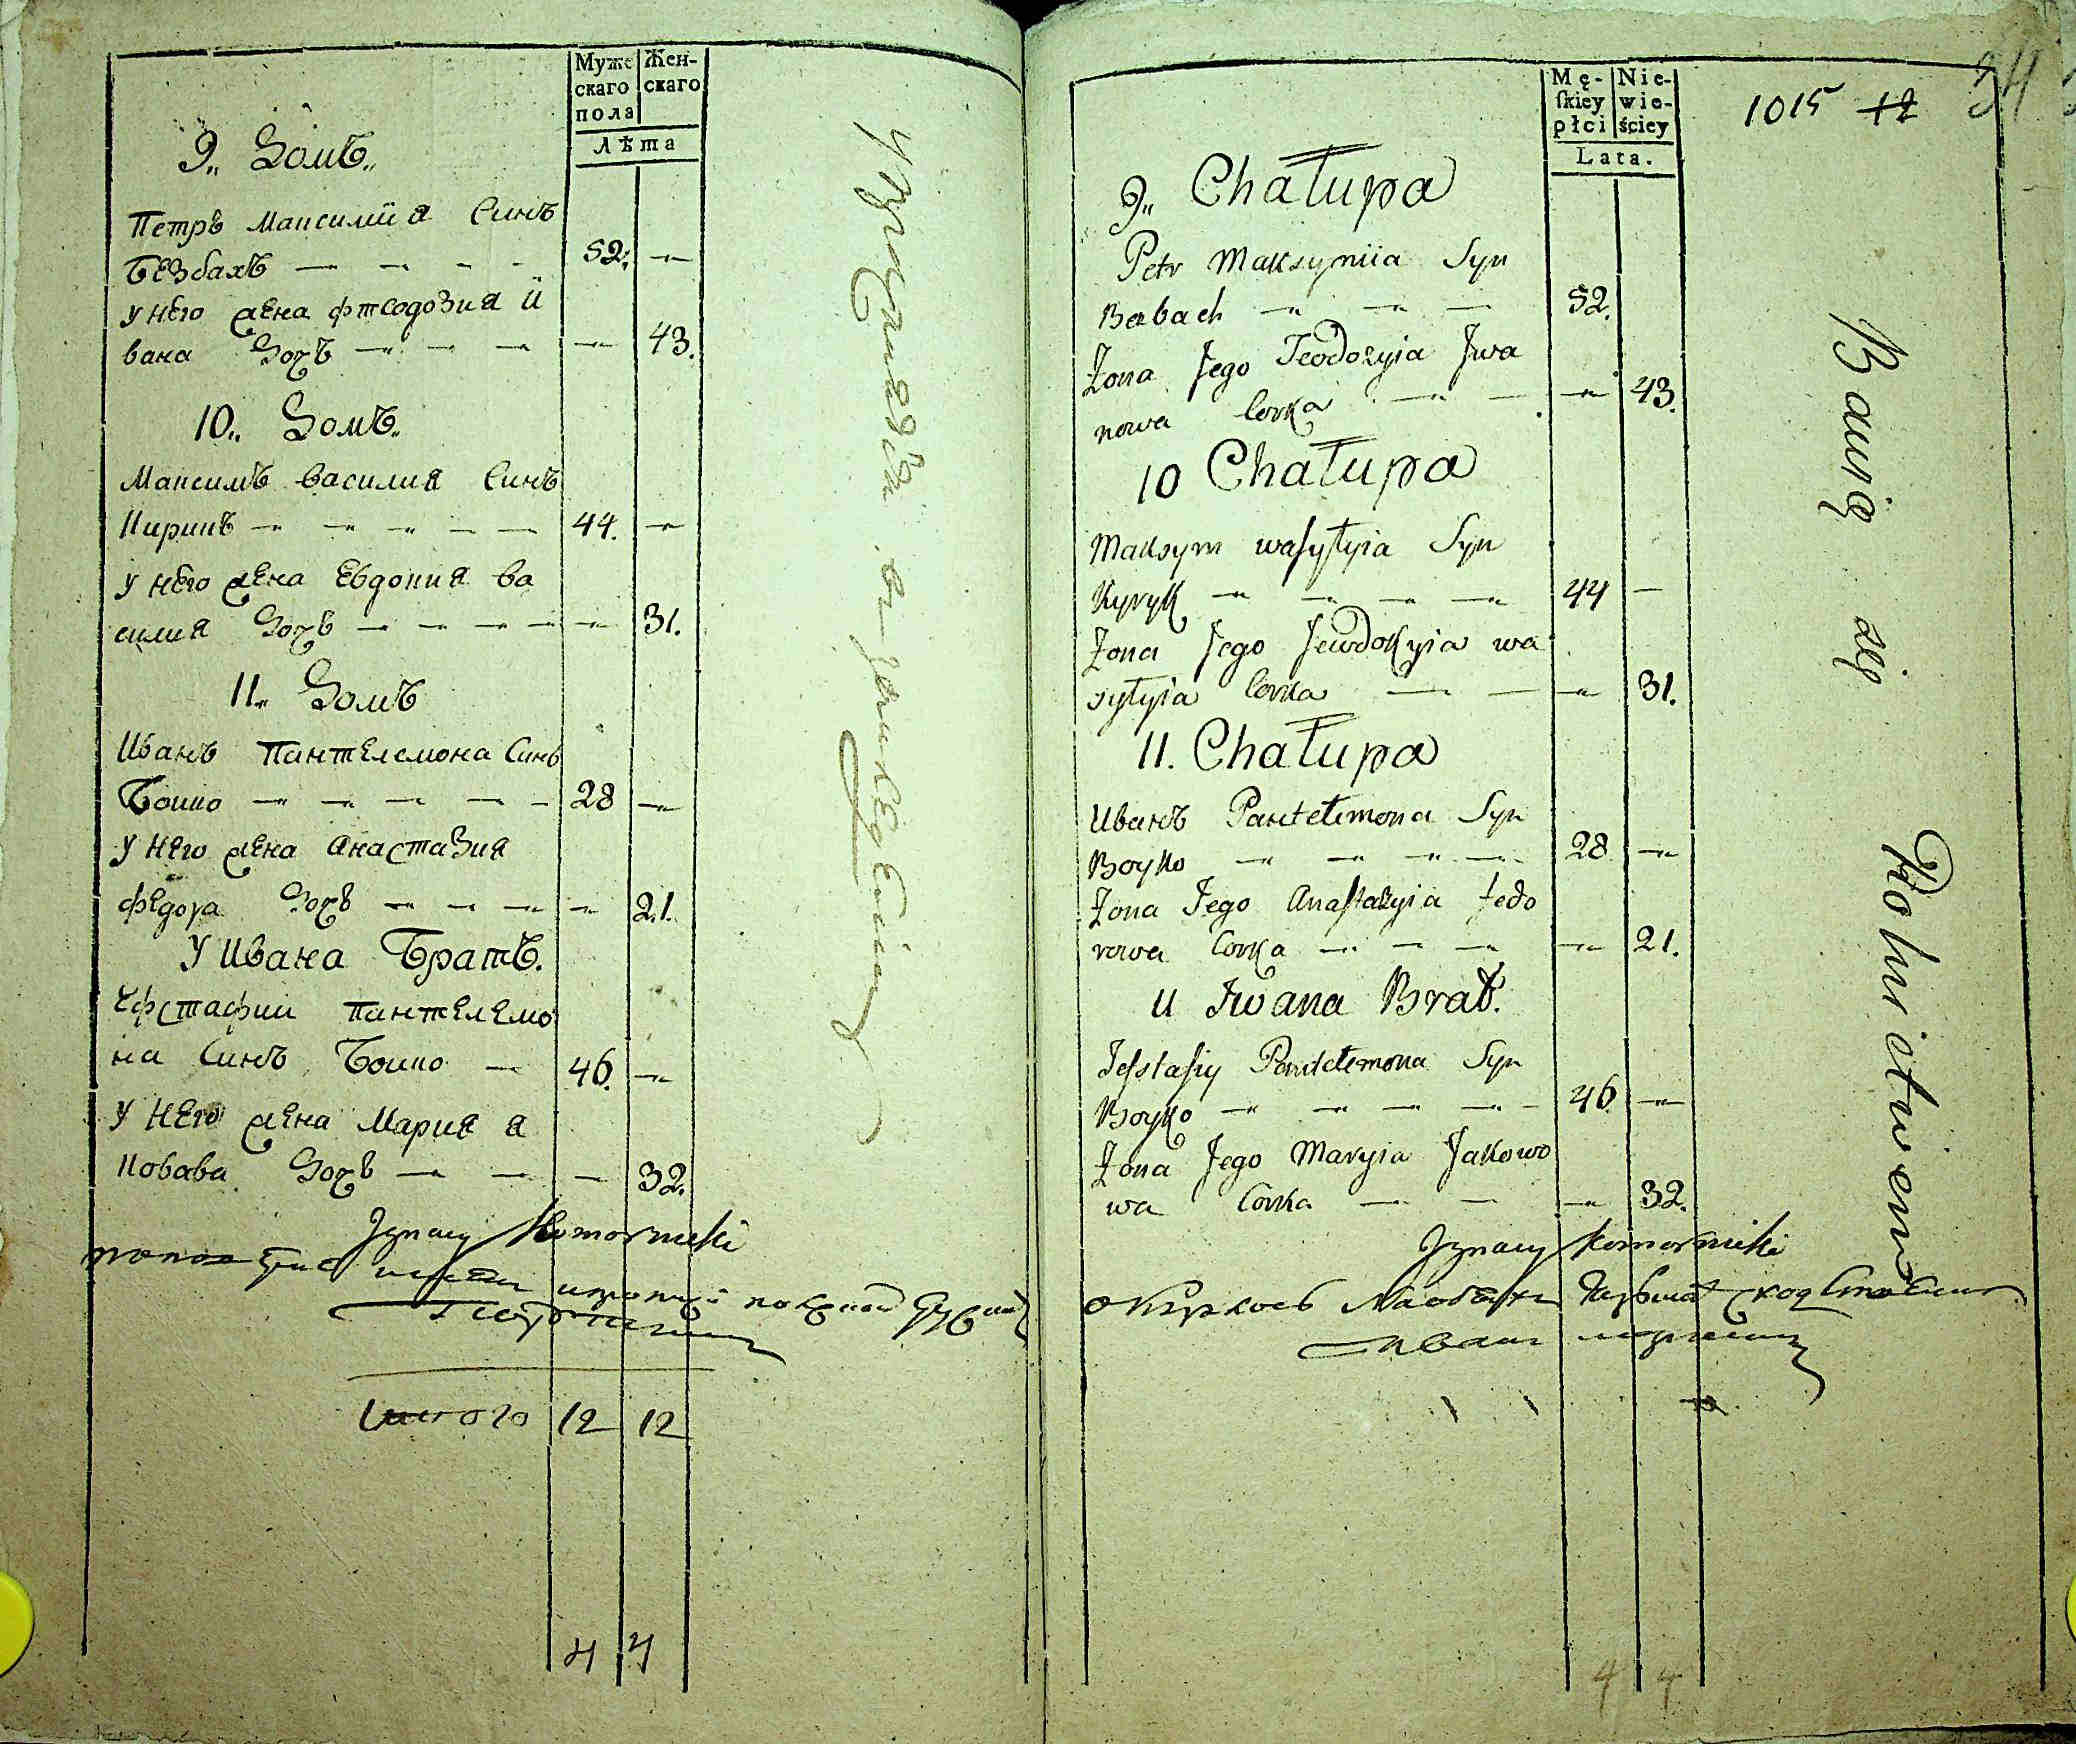 Муже Жен-
скаго скаго
пола
Лѣта
9„ Домъ„
Петръ Максимиа Синъ
Безбахъ 52. —
у него жена Фтеодозиа И
вана Дочъ — 43.
10„ Домъ„
Максимъ Василиа Синъ
Кирикъ 44. —
у него жена Евдокиа Ва
силиа Дочъ — 31.
11„ Домъ
Иванъ Пантелемона Синъ
Боико 28 —
у него жена Анастазиа
Федора Дочъ — 21.
У Ивана Братъ.
Ефстафии Пантелемо
на Синъ Боико — 46. —
у него жена Мариа а
ковава Дочъ — 32.
Jgnacy Komornicki
Итого 12 12
4 4
Mę- Nie-
ſkiey wie-
płci ściey
Lata.
1015 12
34
9„ Chałupa
Petr Maksymiia Syn
Bezbach 52.
Żona Jego Teodozyia Jwa
nowa Corka — 43.
10 Chałupa
Maksym waſyłyia Syn
Kyryk 44 —
Żona Jego Jewdokyia wa
syłyia Corka — 31.
11. Chałupa
Иванъ Pantełemona Syn
Boyko 28 —
Żona Jego Anaſtazyia Fedo
rowa Corka — 21.
U Jwana Brat.
Jefstafiy Pantełemona Syn
Boyko 46 —
Żona Jego Maryia Jakowo
wa Corka — 32.
Jgnacy Komornicki
4 4
Bawią się